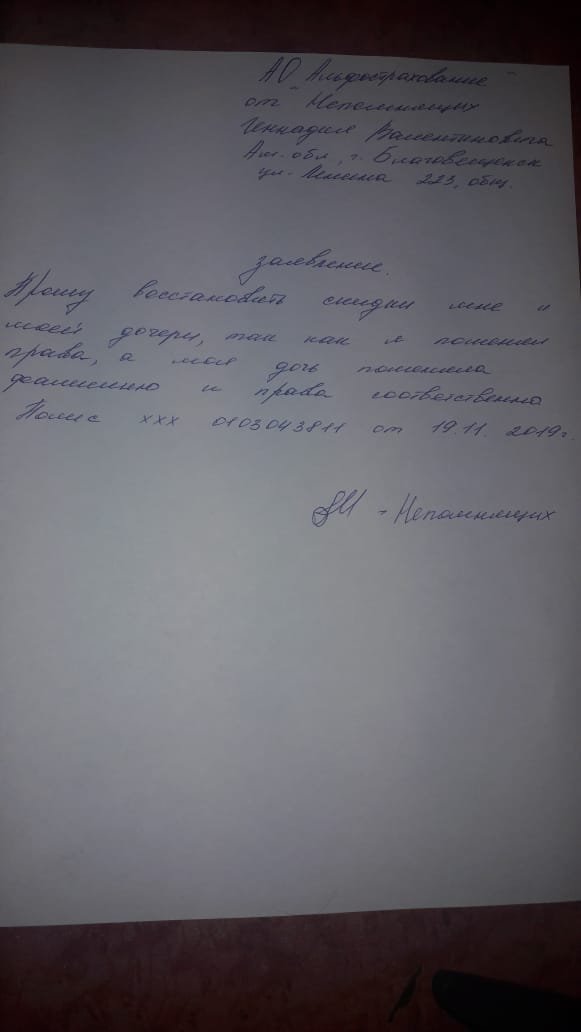 АО "Альфострахование"
от Непомнящих
Геннадия Валентиновича
Ам. обл, г. Благовещенск
ул. Ленина 223, общ.
заявление.
Прошу восстановить скидки мне и
моей дочери, так как я поменял
права, а моя дочь поменяла
фамилию и права соответственно
Полис ххх 0103043811 от 19.11. 2019г.
Непомнящих